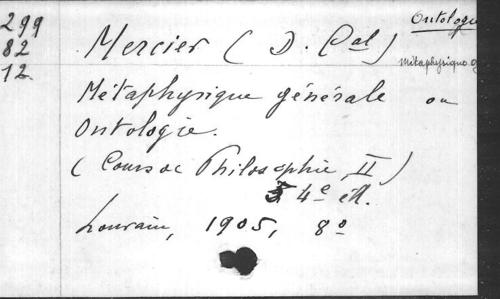 299
82
12.
Ontologie
Mercier ( D. Cal )
Métaphysique g
Métaphysique générale ou
Ontologie.
( Cours de Philosophie, II )
4e éd.
Louvain, 1905, 8°